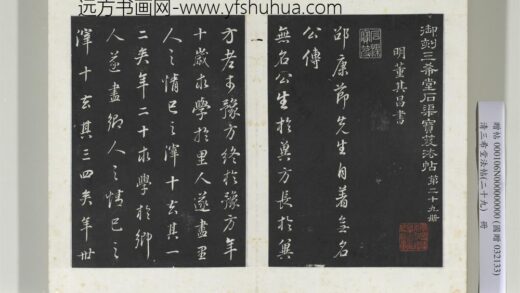 远方书画网-www.yfshuhua.com
贈帖 000106N000000000 (國贈 032133)
清三希堂法帖(二十九) 冊
御刻三希堂石渠寶笈法帖第二十九冊
明董其昌書
邵康節先生自著無名
公傳
無名公生於冀方長於冀
一
方老於豫方終於豫方年
十歲求學於里人遂盡里
人之情己之滓十去其一
二矣年二十求學於鄉
人遂盡鄉人之情己之
滓十去其三四矣年卅